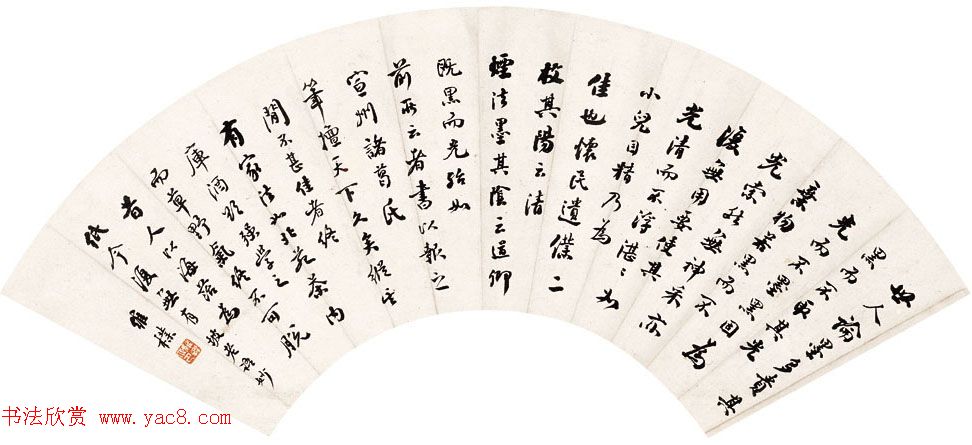 世人論墨多貴其
黑而不取其光
光而不黑固為
棄物若黑而不
光索然無神采亦
復無用要使其
光清而不浮湛湛如
小兒目精乃為
佳也懷民遺僕二
枚其陽云清
煙法墨其陰云道卿
既黑而光殆如
前所云者書以報之
宣州諸葛氏
筆擅天下久矣縱其
間不甚佳者終
有家法如北苑茶內
庫酒欲强學之
而草野氣終不可脫
昔人以海苔為
紙今復無有坡老語妙
书法欣赏 www.yac8.com